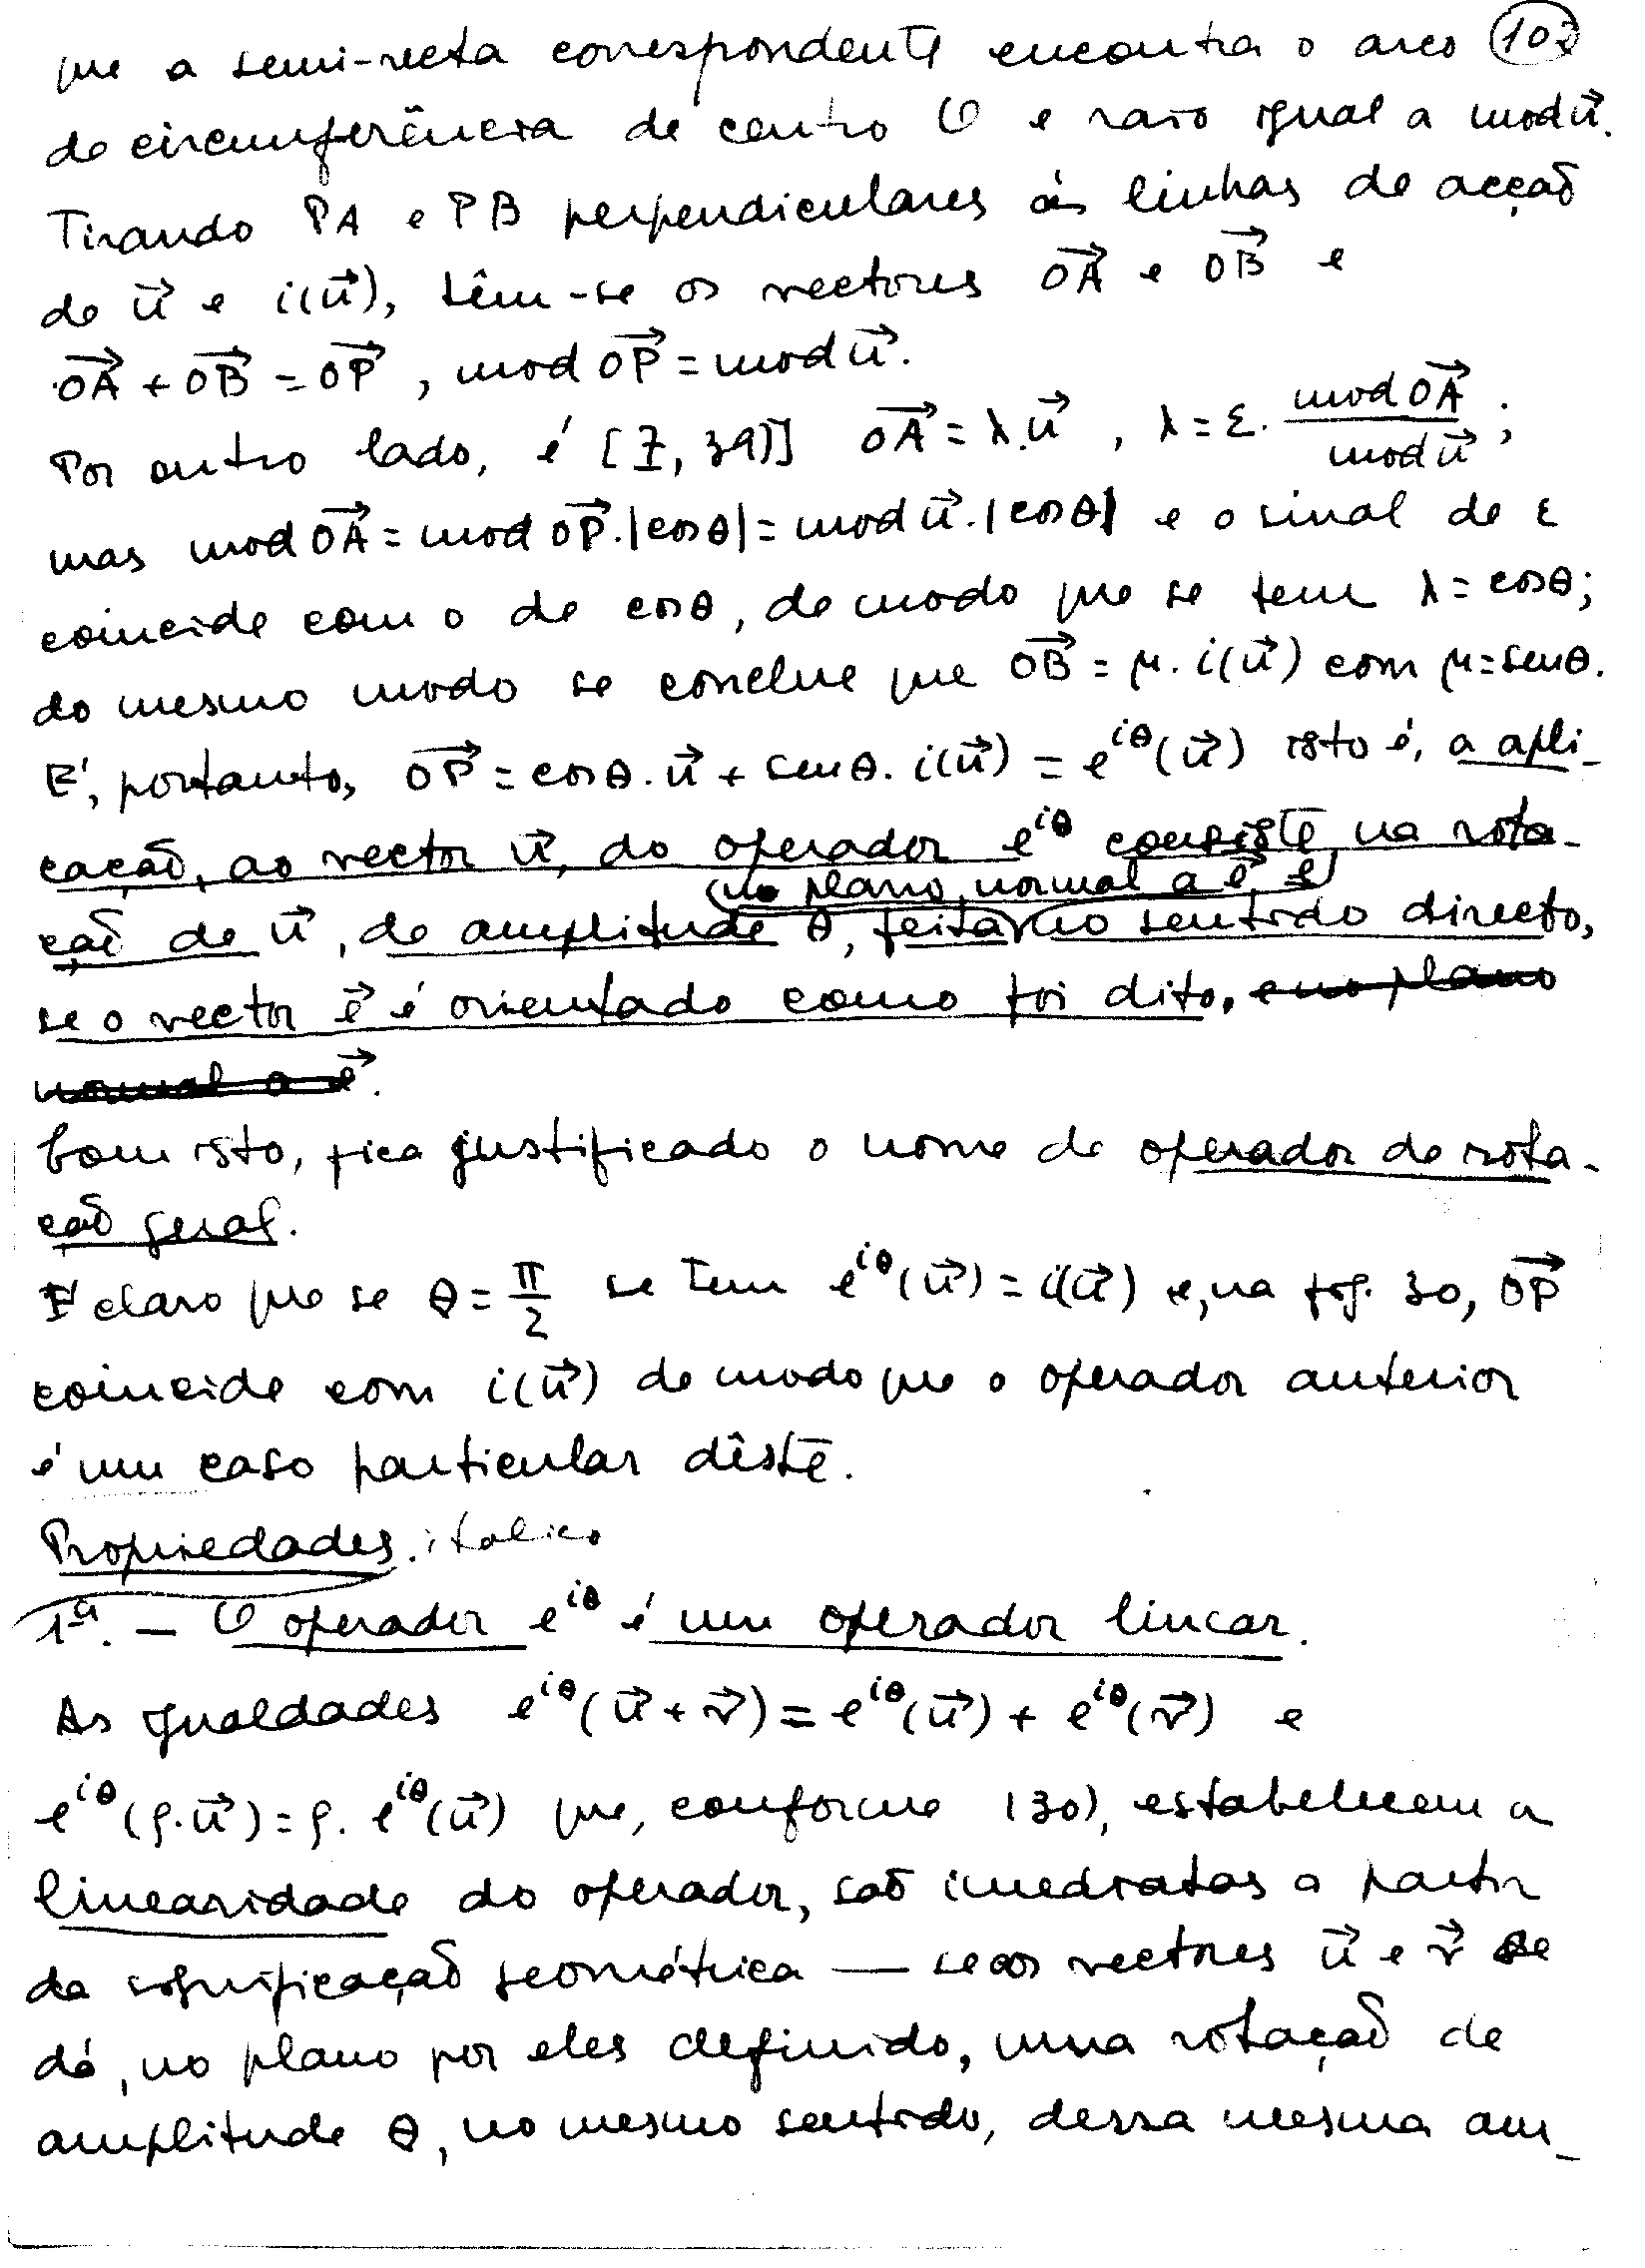 que a semi-recta correspondente encontra o arco (103)
de circunferência de centro O e raio igual a mod u⃗.
Tirando PA e PB perpendiculares às linhas de acção
de u⃗ e i(u⃗), têm-se os vectores OA⃗ e OB⃗ e
OA⃗ + OB⃗ = OP⃗, mod OP⃗ = mod u⃗.
Por outro lado, é [I, 39)] OA⃗ = λ.u⃗, λ = ε. mod OA⃗ / mod u⃗;
mas mod OA⃗ = mod OP⃗.|cosθ| = mod u⃗.|cosθ| e o sinal de ε
coincide com o de cosθ, de modo que se tem λ = cosθ;
do mesmo modo se conclue que OB⃗ = μ. i(u⃗) com μ = senθ.
E', portanto, OP⃗ = cosθ. u⃗ + senθ. i(u⃗) = e^{iθ}(u⃗) isto é, a apli-
cação, ao vector u⃗, do operador e^{iθ} consiste na rota-
(no plano normal a e⃗, e)
ção de u⃗, de amplitude θ, feita no sentido directo,
se o vector e⃗ é orientado como foi dito, e no plano
normal a e⃗.
Com isto, fica justificado o nome de operador de rota-
ção geral.
E' claro que se θ = π/2 se tem e^{iθ}(u⃗) = i(u⃗) e, na fig. 30, OP⃗
coincide com i(u⃗) de modo que o operador anterior
é um caso particular dêste.
Propriedades. italico
1ª. — O operador e^{iθ} é um operador linear.
As igualdades e^{iθ}(u⃗ + v⃗) = e^{iθ}(u⃗) + e^{iθ}(v⃗) e
e^{iθ}(ρ.u⃗) = ρ. e^{iθ}(u⃗) que, conforme 130), estabelecem a
linearidade do operador, são imediatas a partir
da significação geométrica — se aos vectores u⃗ e v⃗ se
dá, no plano por eles definido, uma rotação de
amplitude θ, no mesmo sentido, dessa mesma am-